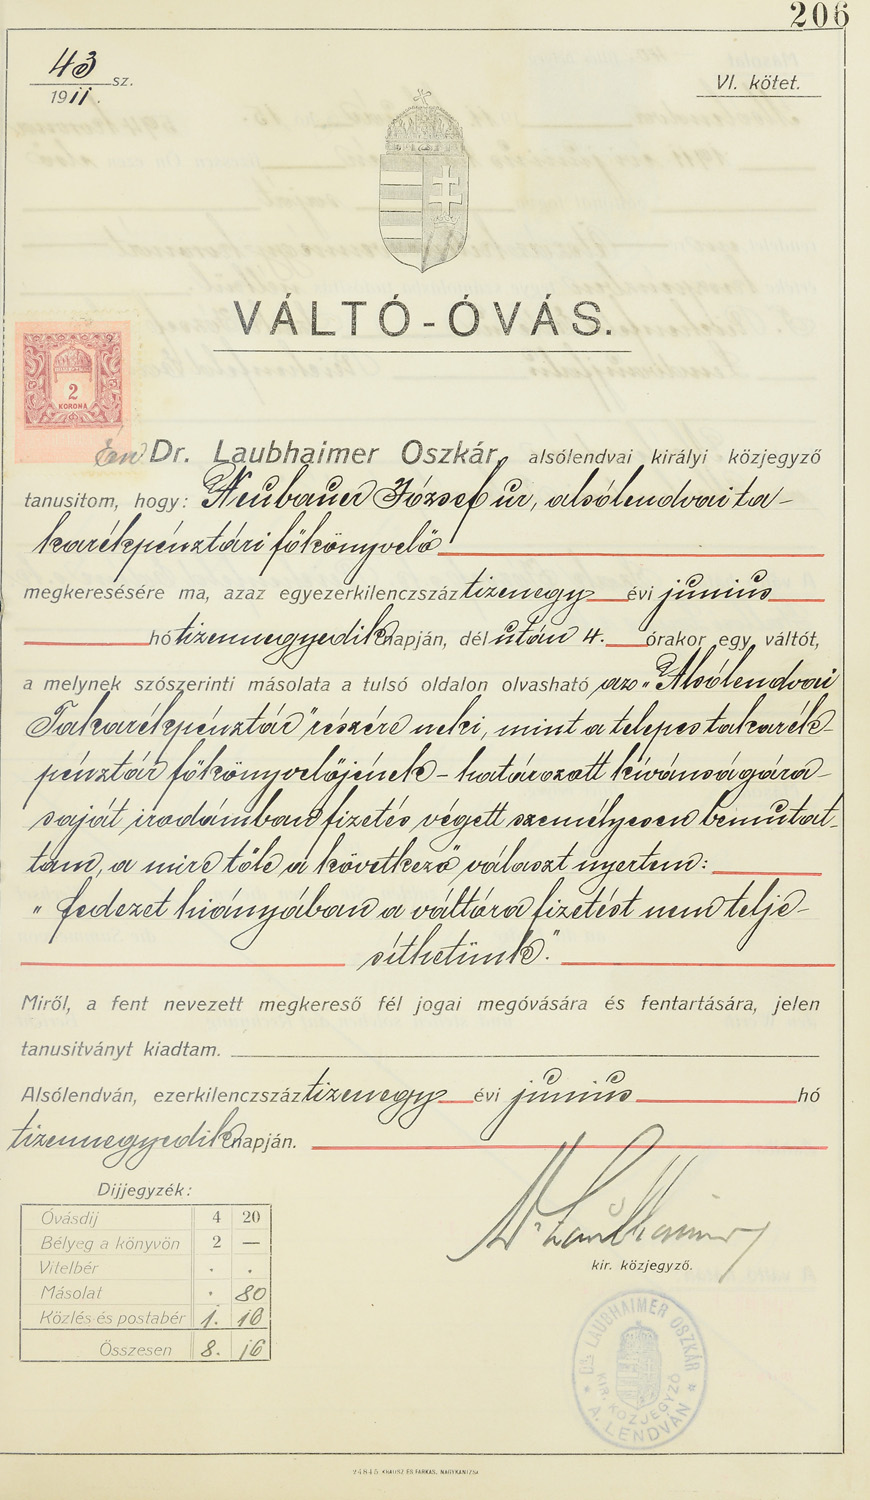 206
43 sz.
1911.
VI. kötet.
VÁLTÓ-ÓVÁS.
2
KORONA
Én Dr. Laubhaimer Oszkár, alsólendvai királyi közjegyző
tanusitom, hogy: Neubauer József ur, alsólendvai ta-
karékpénztári főkönyvelő
megkeresésére ma, azaz egyezerkilenczszáz tizenegy évi junius
hó tizennegyedik napján, dél után 4. órakor egy váltót,
a melynek szószerinti másolata a tulsó oldalon olvasható az „Alsólendvai
Takarékpénztár" részére neki, mint a telepes takarék-
pénztár főkönyvelőjének – határozott kívánságára –
saját irodámban fizetés végett személyesen bemutat-
tam, a mire tőle a következő választ nyertem:
„fedezet hiányában a váltóra fizetést nem telje-
síthetünk".
Miről, a fent nevezett megkereső fél jogai megóvására és fentartására, jelen
tanusitványt kiadtam.
Alsólendván, ezerkilenczszáz tizenegy évi junius hó
tizennegyedik napján.
Dr. Laubhaimer
kir. közjegyző.
Dijjegyzék:
Óvásdij 4 20
Bélyeg a könyvön 2 —
Vitelbér . .
Másolat . 80
Közlés-és postabér 1. 16
Összesen 8. 16
DR. LAUBHAIMER OSZKÁR
KIR. KÖZJEGYZŐ
* A. LENDVÁN *
24845 KRAUSZ ÉS FARKAS, NAGYKANIZSA